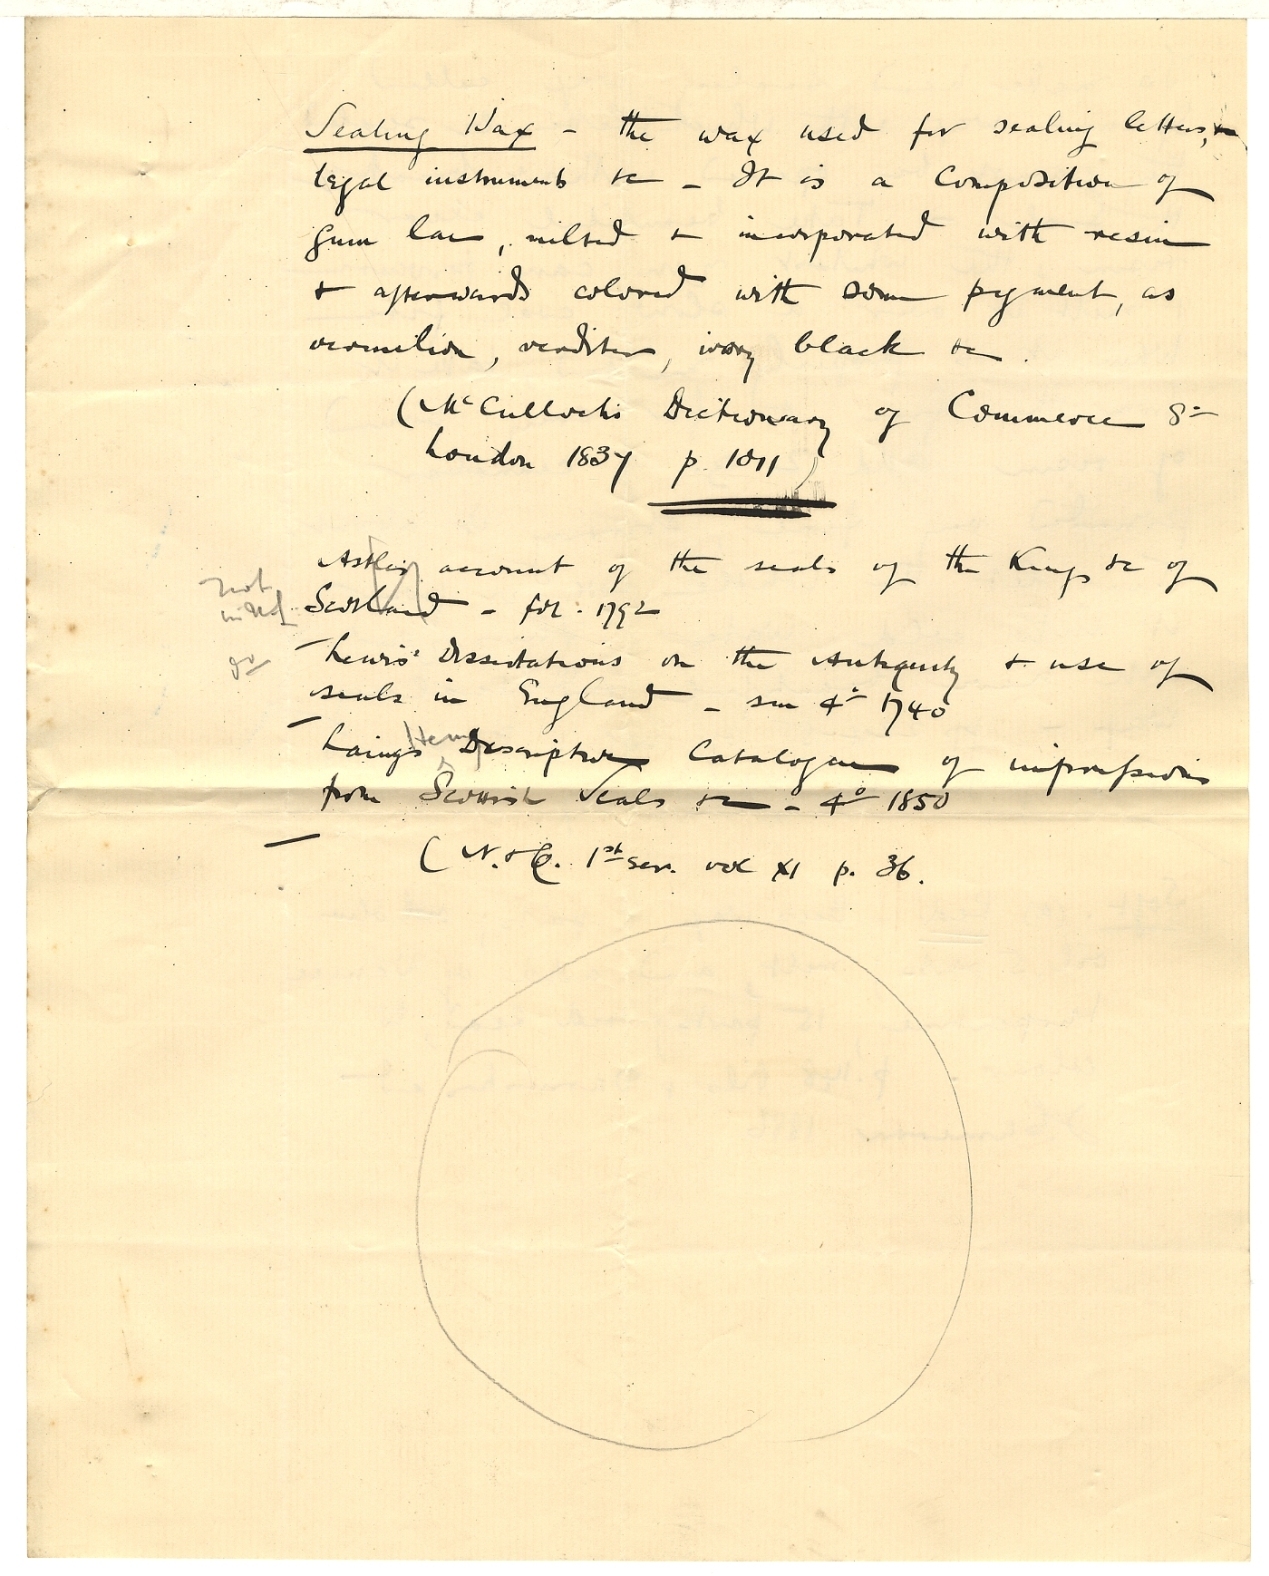 Sealing Wax - the wax used for sealing letters,
legal instruments &c - It is a Composition of
Gum lac, melted & incorporated with resin
& afterwards colored with some pigment, as
vermilion, verditer, ivory black &c.
(McCulloch's Dictionary of Commerce 8º
London 1837 p. 1011)
Astle's account of the seals of the Kings &c of
not
in Ud
Scotland - fol. 1792
do
Lewis' Dissertations on the Antiquity & use of
seals in England - sm 4º 1740
Henry
Laing's Descriptive Catalogue of impressions
from Scottish Seals &c - 4º 1850
(N. & Q. 1st ser. vol XI p. 36.